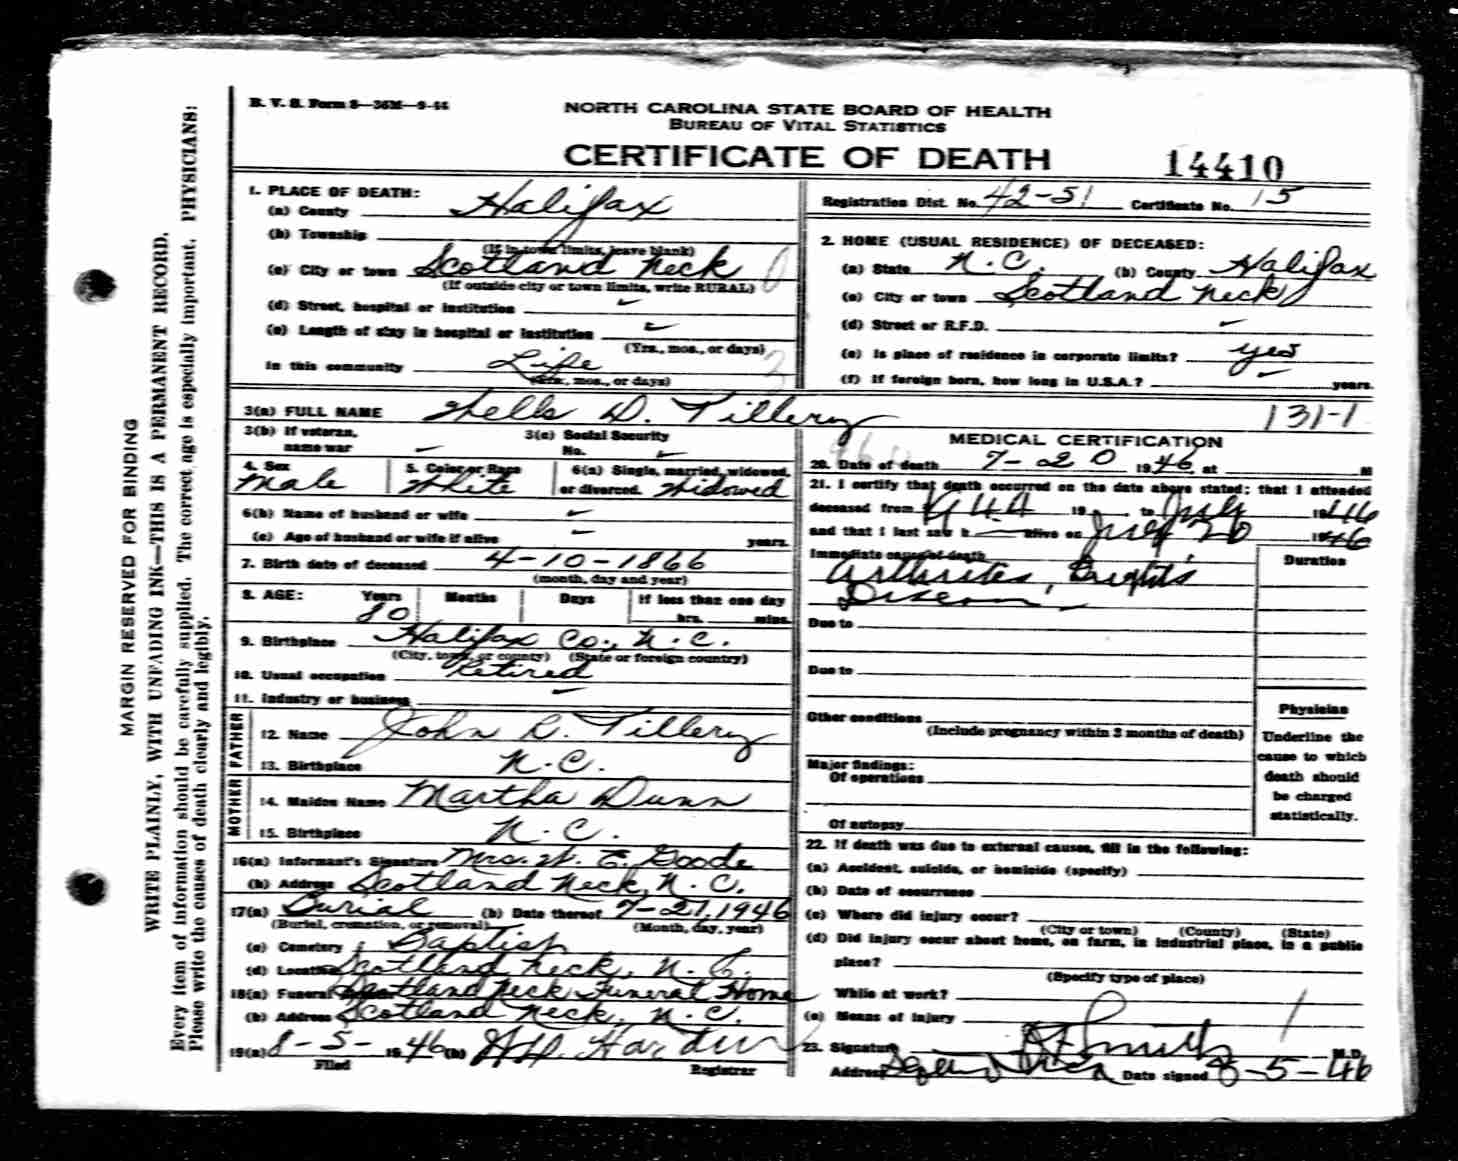 MARGIN RESERVED FOR BINDING
WRITE PLAINLY, WITH UNFADING INK—THIS IS A PERMANENT RECORD.
Every item of information should be carefully supplied. The correct age is especially important. PHYSICIANS:
Please write the causes of death clearly and legibly.
R. V. S. Form 8—36M—9-44
NORTH CAROLINA STATE BOARD OF HEALTH
BUREAU OF VITAL STATISTICS
CERTIFICATE OF DEATH
14410
1. PLACE OF DEATH:
(a) County Halifax
(b) Township
(If in town limits, leave blank)
(c) City or town Scotland Neck
(If outside city or town limits, write RURAL)
(d) Street, hospital or institution
(e) Length of stay in hospital or institution
(Yrs., mos., or days)
In this community Life
(Yrs., mos., or days)
Registration Dist. No. 42-51 Certificate No. 15
2. HOME (USUAL RESIDENCE) OF DECEASED:
(a) State N.C. (b) County Halifax
(c) City or town Scotland Neck
(d) Street or R.F.D.
(e) Is place of residence in corporate limits? yes
(f) If foreign born, how long in U.S.A.? years.
3(a) FULL NAME D. Tillery
131-1
3(b) If veteran, name war
3(c) Social Security No.
4. Sex Male
5. Color or Race White
6(a) Single, married, widowed, or divorced. Widowed
6(b) Name of husband or wife
(c) Age of husband or wife if alive years.
7. Birth date of deceased 4-10-1866
(month, day and year)
8. AGE: Years 80 Months Days If less than one day hrs. mins.
9. Birthplace Halifax Co., N.C.
(City, town, or county) (State or foreign country)
10. Usual occupation Retired
11. Industry or business
FATHER
12. Name John R. Tillery
13. Birthplace N.C.
MOTHER
14. Maiden Name Martha Dunn
15. Birthplace N.C.
16(a) Informant's Signature Mrs. W. E. Goode
(b) Address Scotland Neck, N.C.
17(a) Burial (b) Date thereof 7-21, 1946
(Burial, cremation, or removal) (Month, day, year)
(c) Cemetery Baptist
(d) Location Scotland Neck, N.C.
18(a) Funeral Scotland Neck Funeral Home
(b) Address Scotland Neck, N.C.
19(a) 8-5- 1946 (b)
Filed Registrar
MEDICAL CERTIFICATION
20. Date of death 7-20 1946 at M
21. I certify that death occurred on the date above stated; that I attended
deceased from 19 to July 1946
and that I last saw h alive on July 20 1946
Immediate cause of death Duration
Arthrites, Bright's
Disease
Due to
Due to
Other conditions
(Include pregnancy within 3 months of death)
Major findings:
Of operations
Of autopsy
Physician
Underline the
cause to which
death should
be charged
statistically.
22. If death was due to external causes, fill in the following:
(a) Accident, suicide, or homicide (specify)
(b) Date of occurrence
(c) Where did injury occur?
(City or town) (County) (State)
(d) Did injury occur about home, on farm, in industrial place, in a public
place?
(Specify type of place)
While at work?
(e) Means of injury
23. Signature Smith M.D.
Address Date signed 8-5-46